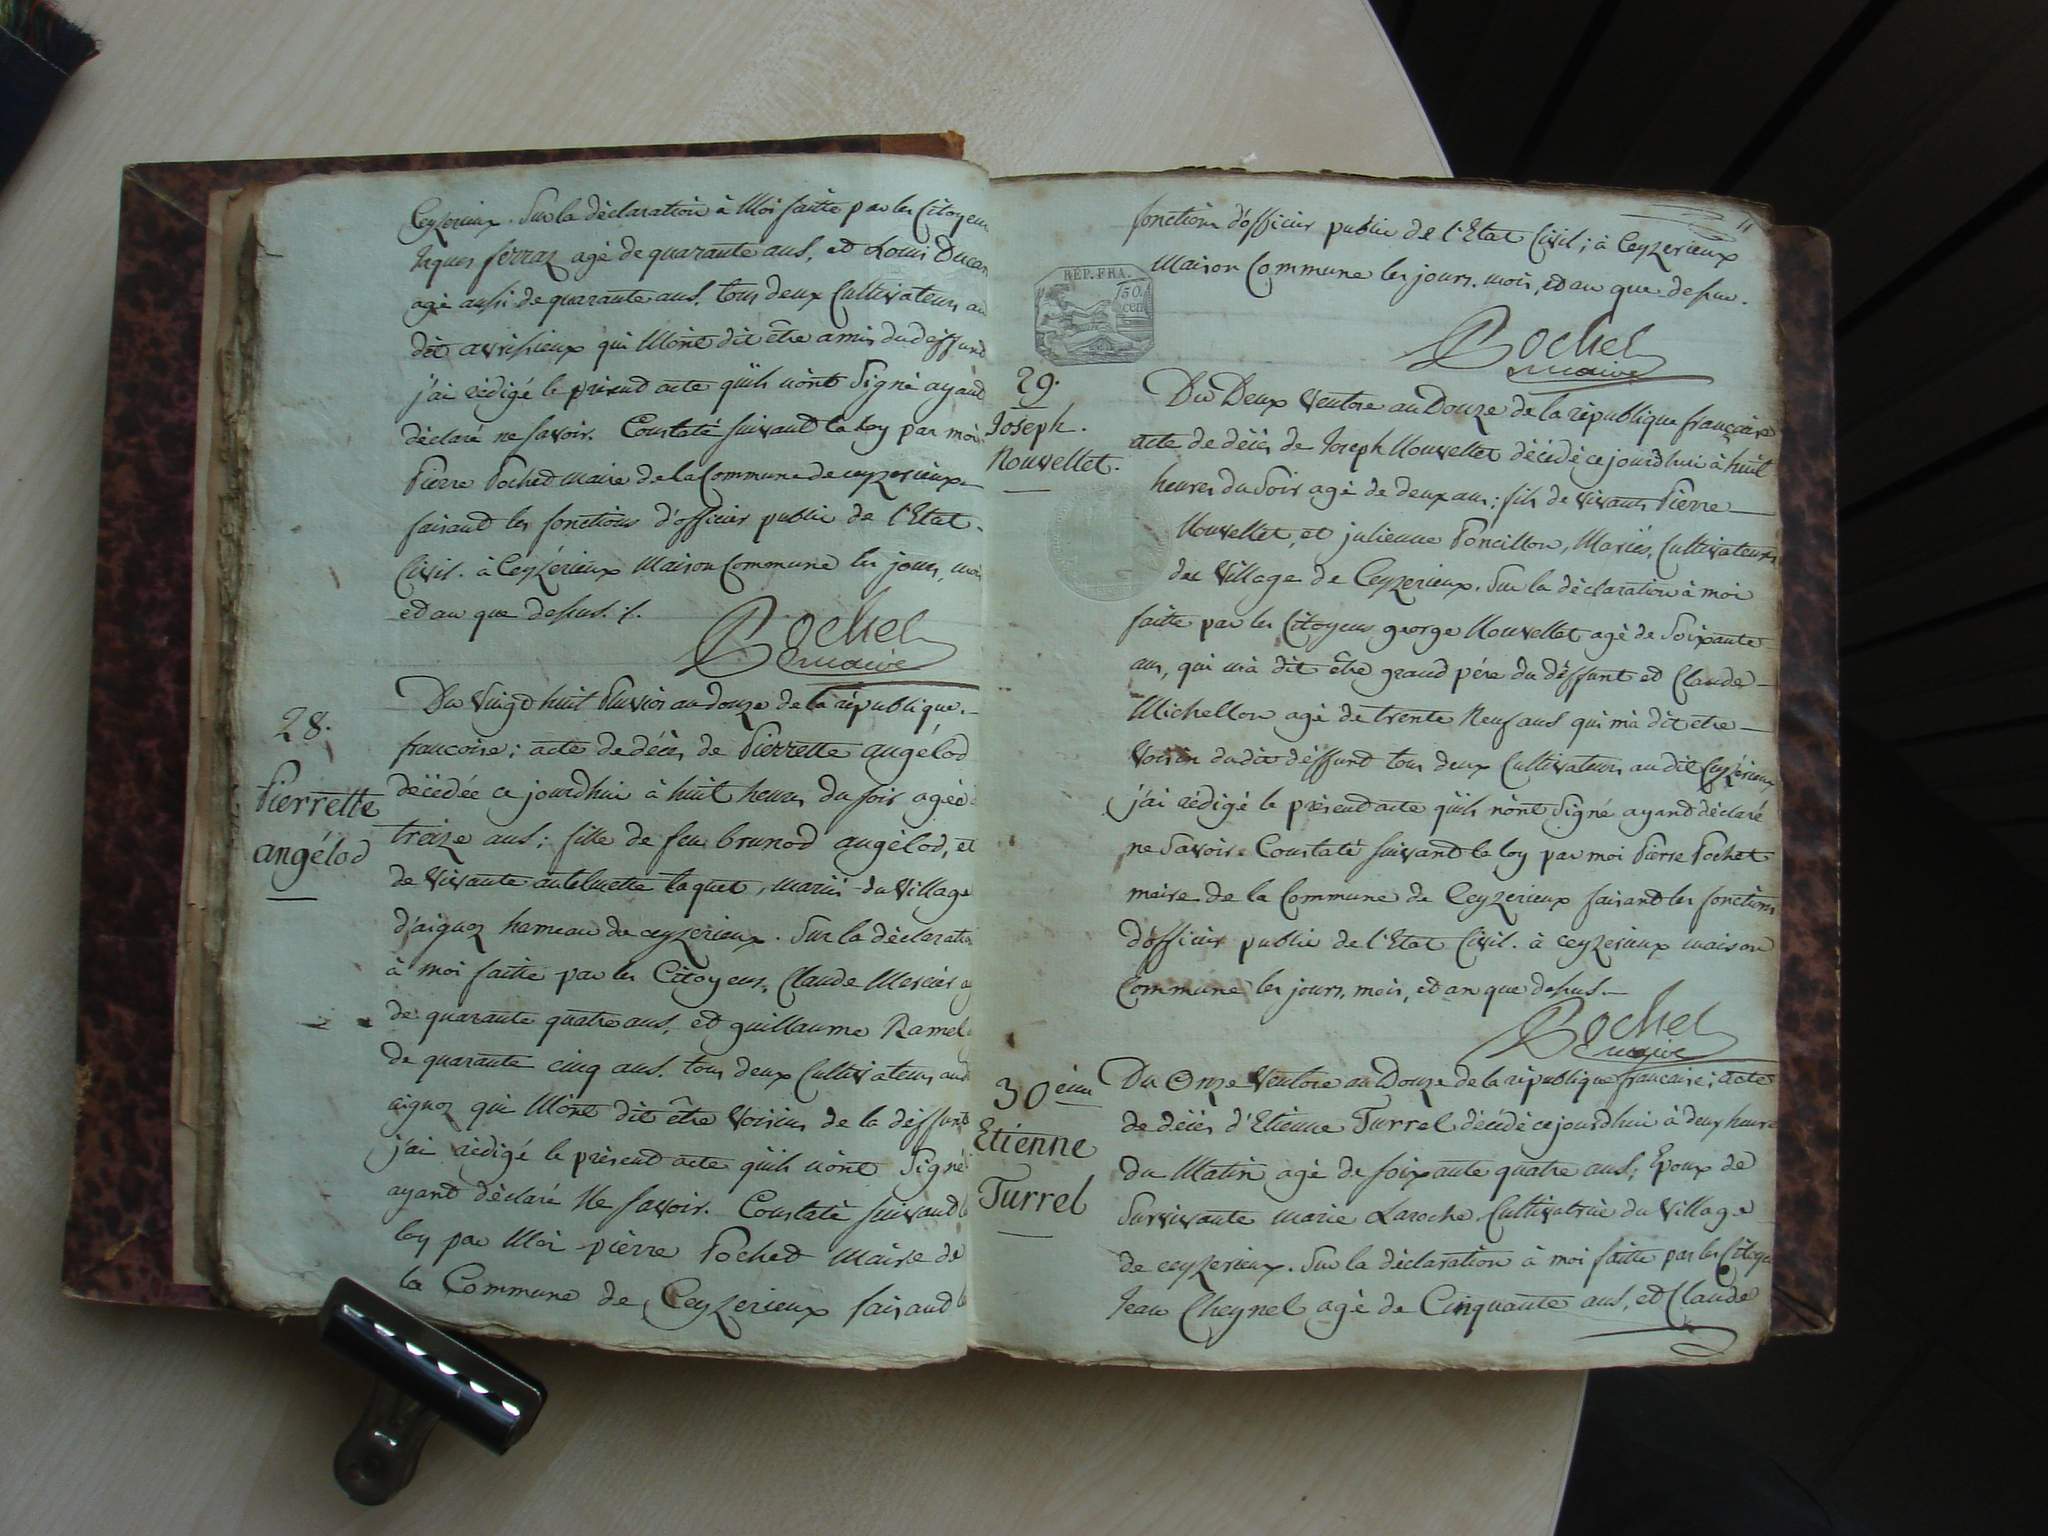 Ceyzerieux. Sur la déclaration à Moi faitte par les Citoyens
Jaques ferraz agé de quarante ans, et Louis Ducar
agé aussi de quarante ans. tous deux Cultivateurs au
dit avrissieux qui M'ont dit être amis du deffund
j'ai rédigé le présend acte qu'ils n'ont Signé ayand
déclaré ne savoir. Constaté suivand la loy par moi
Pierre Pochet maire de la Commune de ceyzerieux
faisand les fonctions d'officier public de l'Etat
Civil. à Ceyzérieux Maison Commune les jours, mois
et an que dessus ./.
Pochet
maire
28.
Pierrette
angélod
Du Vingt huit Pluvios an douze de la république
francoise; acte de décès de Pierrette angélod
décédée ce jourdhui à huit heures du soir agée d
treize ans; fille de feu brunod angélod, et
de vivante antelmette taquet, mariés du Village
d'aignoz hameau de ceyzerieux. Sur la déclaration
à moi faitte par les Citoyens, Claude Mercier ag
de quarante quatre ans, et guillaume Ramel
de quarante cinq ans. tous deux Cultivateurs aud
aignoz qui M'ont dit être Voisins de la deffunte
j'ai rédigé le présend acte qu'ils n'ont Signé
ayand déclaré Ne savoir. Constaté suivand la
loy par Moi pierre Pochet Maire de
la Commune de Ceyzerieux faisand le
11
fonctions d'officier public de l'Etat Civil; à Ceyzerieux
Maison Commune les jours, mois, et an que dessus.
REP. FRA.
50.
cen
Pochet
maire
29.
Joseph.
Nouvellet.
Du Deux Ventose an Douze de la république française
acte de décès de Joseph Nouvellet décédé ce jourdhui à huit
heures du Soir agé de deux ans; fils de vivants Pierre
Nouvellet, et julienne Poncillon, Mariés, Cultivateurs
du Village de Ceyzerieux. Sur la déclaration à moi
faitte par les Citoyens george Nouvellet agé de Soixante
ans, qui m'a dit être grand père du deffunt et Claude
Michellon agé de trente Neuf ans qui m'a dit etre
Voisin du dit deffund tous deux Cultivateurs au dit Ceyzérieux
j'ai rédigé le présend acte qu'ils n'ont Signé ayand déclaré
ne Savoir. Constaté suivand la loy par moi Pierre Pochet
maire de la Commune de Ceyzerieux faisand les fonctions
d'officier public de l'Etat Civil. à ceyzerieux maison
Commune les jours, mois, et an que dessus.
Pochet
maire
30 ème
Etienne
Turrel
Du Onze Ventose an Douze de la république francaise; acte
de décès d'Etienne Turrel décédé ce jourdhui à deux heures
du Matin agé de soixante quatre ans; Epoux de
Survivante marie Laroche Cultivatrice du Village
de ceyzerieux. Sur la déclaration à moi faitte par les Citoye
Jean Cheynel agé de Cinquante ans, et Claude